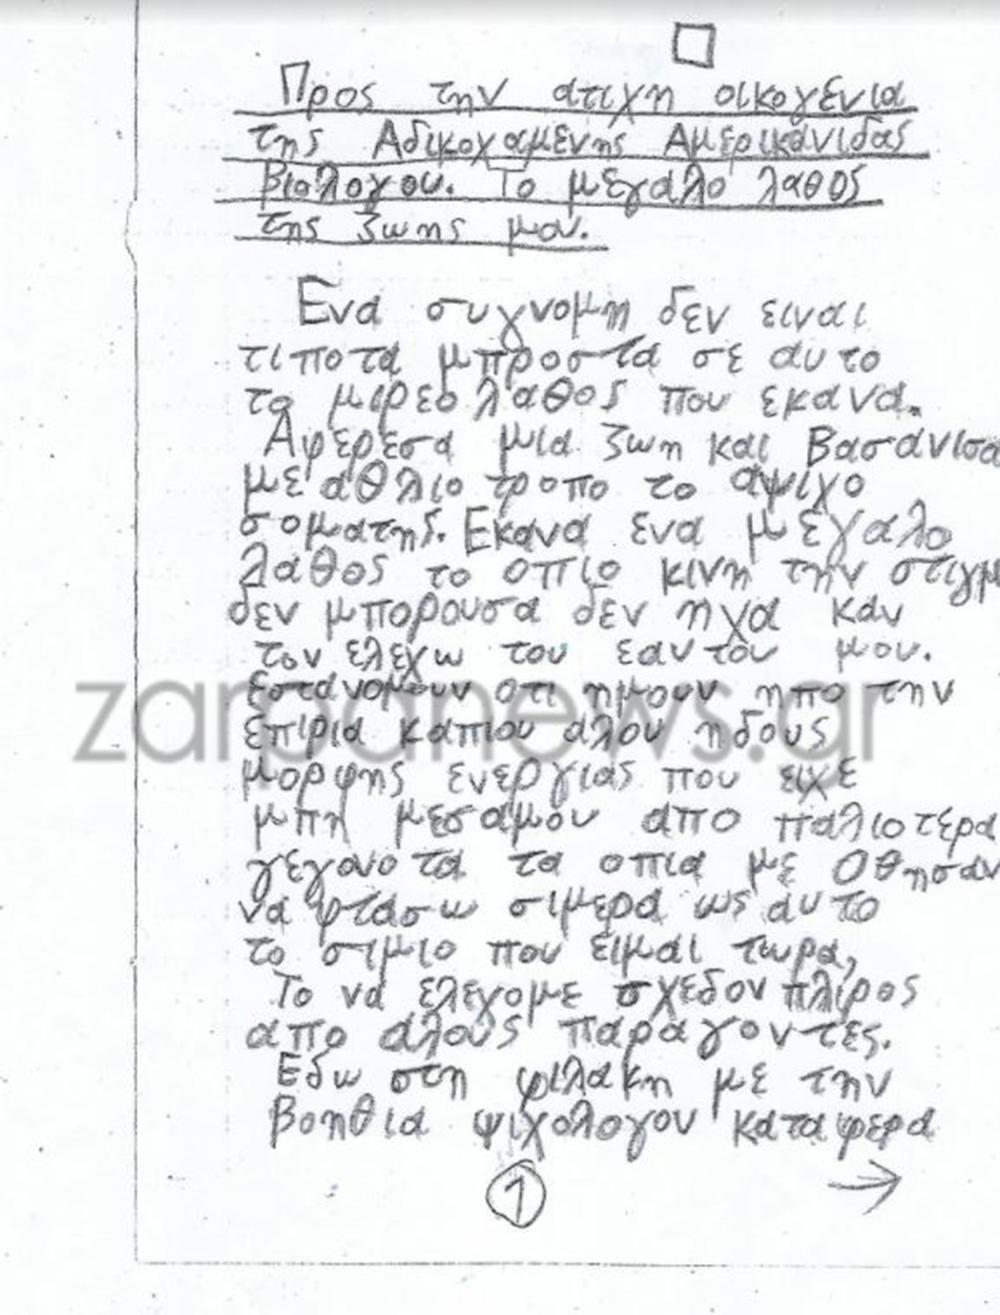 Προς την ατιχη οικογενια
της Αδικοχαμενης Αμερικανιδας
βιολογου. Το μεγαλο λαθος
της ζωης μου.
Ενα συγνομη δεν ειναι
τιποτα μπροστα σε αυτο
το μιρεο λαθος που εκανα.
Αφερεσα μια ζωη και Βασανισα
με αθλιο τροπο το αψιχο
σοματης. Εκανα ενα μεγαλο
λαθος το οπιο κινη την στιγμ
δεν μπορουσα δεν ηχα καν
τον ελεχω του εαυτου μου.
Εστανομουν οτι ημουν ηπο την
επιρια καπιου αλου ηδους
μορφης ενεργιας που ειχε
μπη μεσαμου απο παλιοτερα
γεγονοτα τα οπια με Οθησαν
να φτασω σιμερα ως αυτο
το σιμιο που ειμαι τωρα,
Το να ελεχομε σχεδον πλιρος
απο αλους παραγοντες.
Εδω στη φιλακη με την
Βοηθια ψιχολογου καταφερα
1
zarpanews.gr